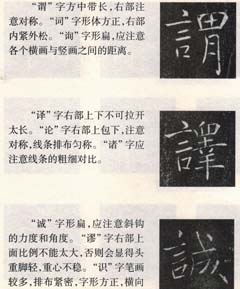 “谓”字方中带长，右部注
意对称。“词”字形体方正，右部
内紧外松。“询”字形扁，应注意
各个横画与竖画之间的距离。
謂
“译”字右部上下不可拉开
太长。“论”字右部上包下，注意
对称，线条排布匀称。“诸”字应
注意线条的粗细对比。
譯
“诚”字形扁，应注意斜钩
的力度和角度。“谬”字右部上
面比例不能太大，否则会显得头
重脚轻，重心不稳。“识”字笔画
较多，排布紧密，字形方正，横向
誠